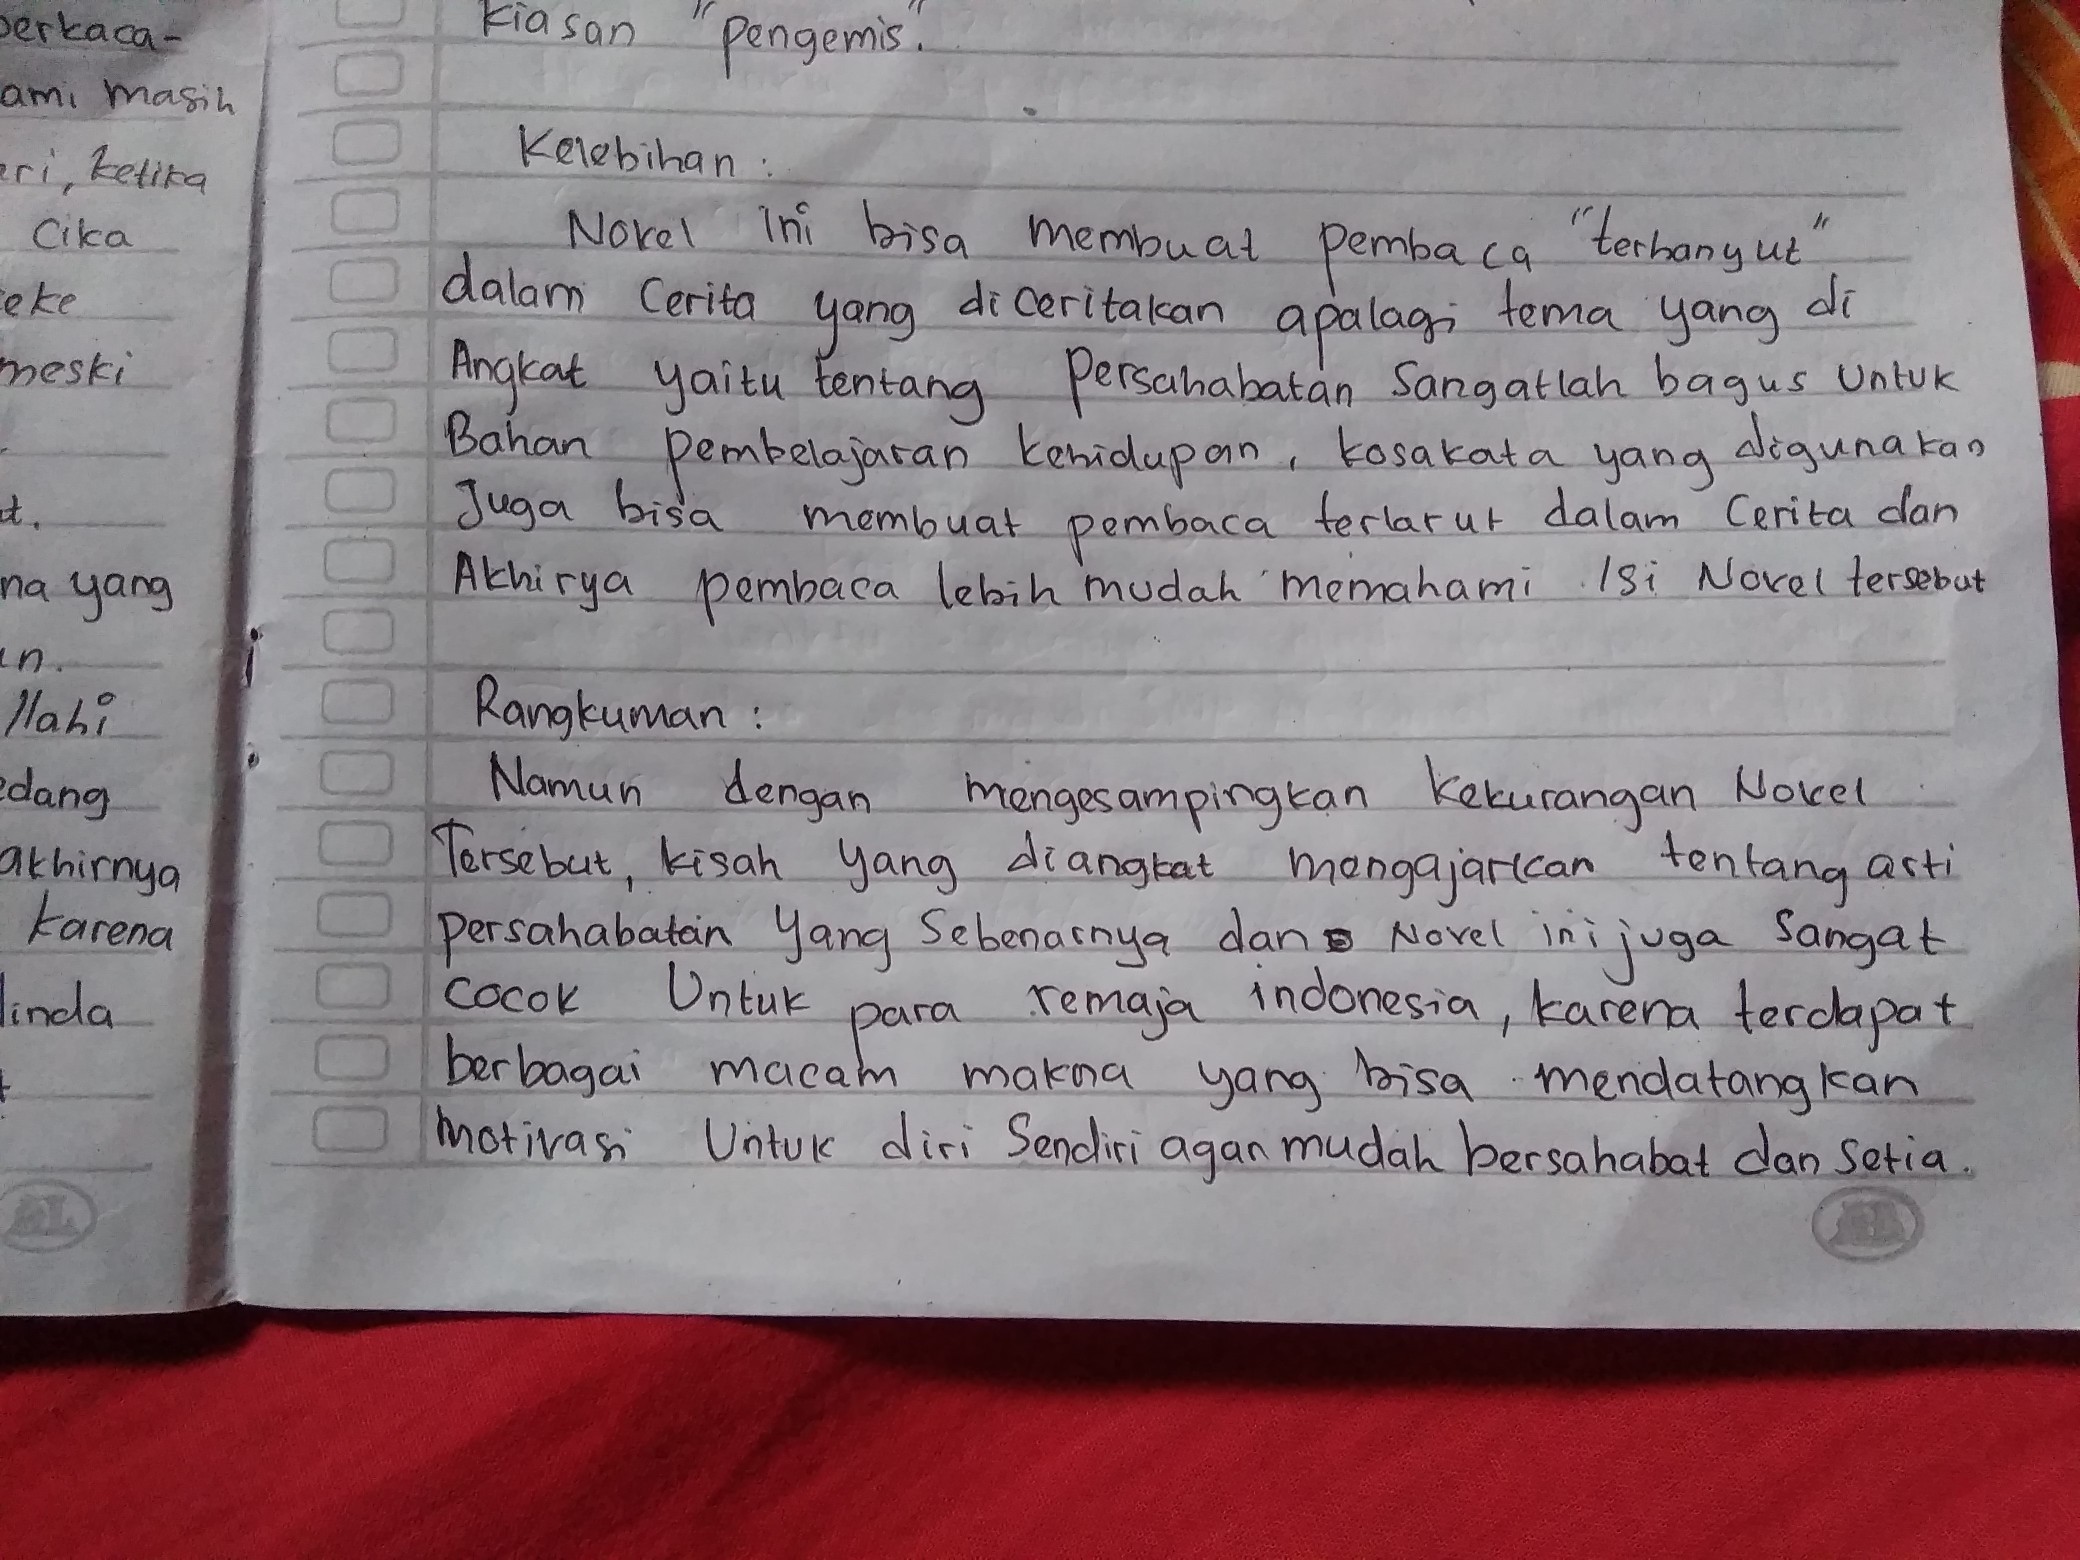 berkaca-
ami masih
eri, ketika
Cika
eke
meski
t.
na yang
in.
llahi
edang
akhirnya
karena
linda
kiasan "pengemis".
Kelebihan :
Novel ini bisa membuat pembaca "terhanyut"
dalam Cerita yang diceritakan apalagi tema yang di
Angkat yaitu tentang Persahabatan Sangatlah bagus Untuk
Bahan pembelajaran kehidupan, kosakata yang digunakan
Juga bisa membuat pembaca terlarut dalam Cerita dan
Akhirya pembaca lebih mudah memahami Isi Novel tersebut
Rangkuman :
Namun dengan mengesampingkan Kekurangan Novel
Tersebut, kisah yang diangkat mengajarkan tentang arti
persahabatan Yang Sebenarnya dan Novel ini juga Sangat
cocok Untuk para remaja indonesia, karena terdapat
berbagai macam makna yang bisa mendatangkan
motivasi Untuk diri Sendiri agan mudah bersahabat dan Setia.